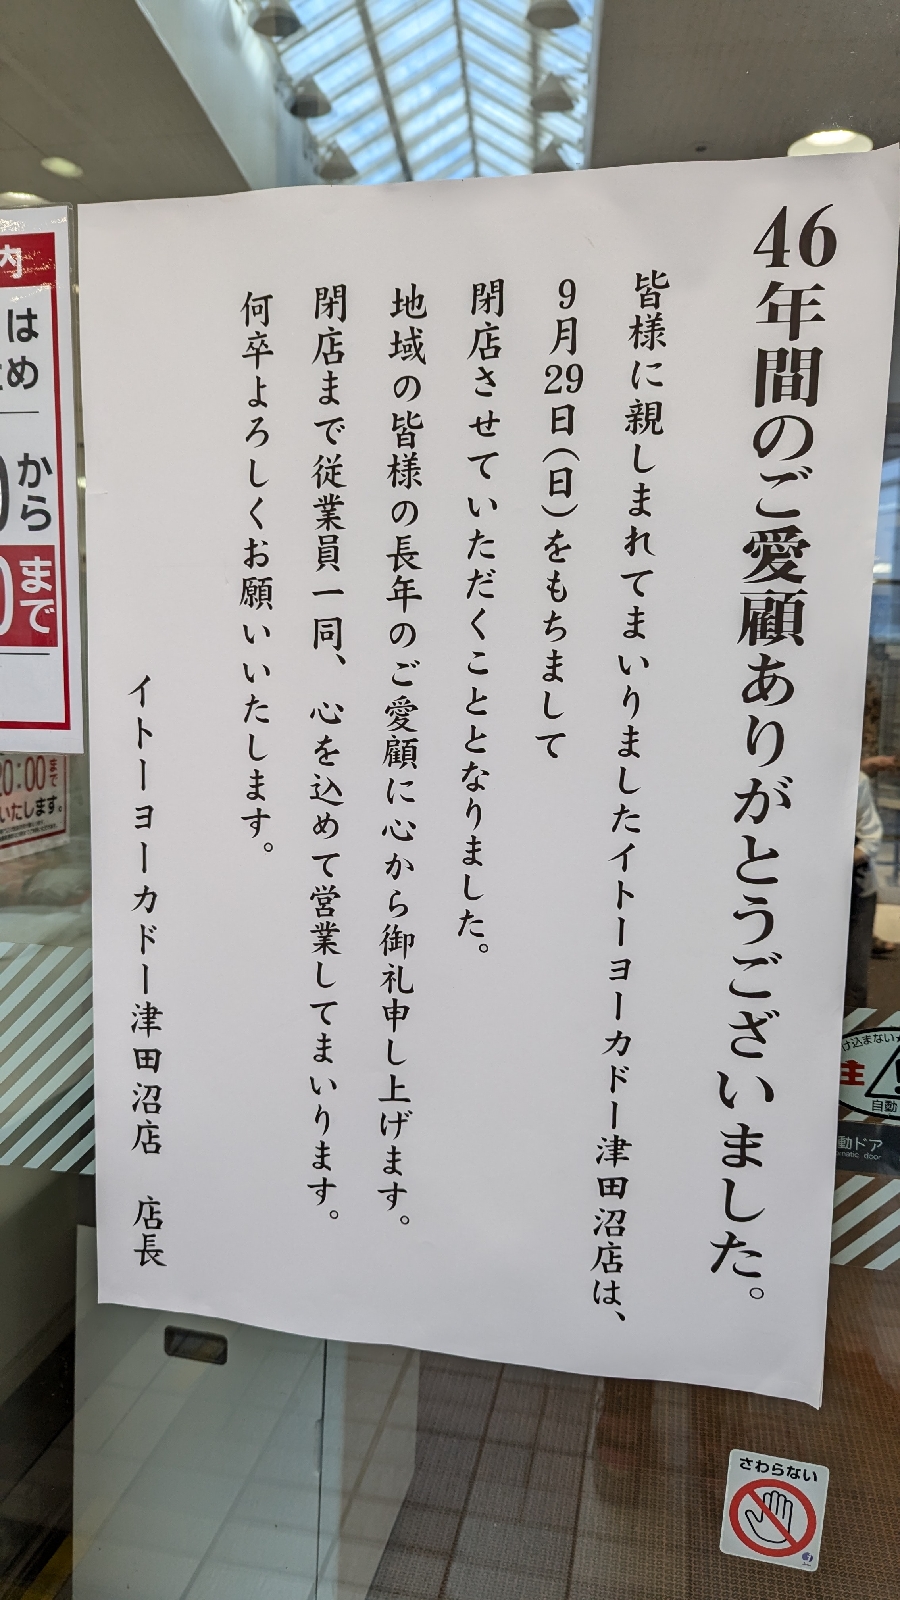 46年間のご愛顧ありがとうございました。
皆様に親しまれてまいりましたイトーヨーカドー津田沼店は、
9月29日(日)をもちまして
閉店させていただくこととなりました。
地域の皆様の長年のご愛顧に心から御礼申し上げます。
閉店まで従業員一同、心を込めて営業してまいります。
何卒よろしくお願いいたします。
イトーヨーカドー津田沼店 店長
内
は
め
から
まで
20:00まで
いたします。
け込まない
注
自動
動ドア
さわらない